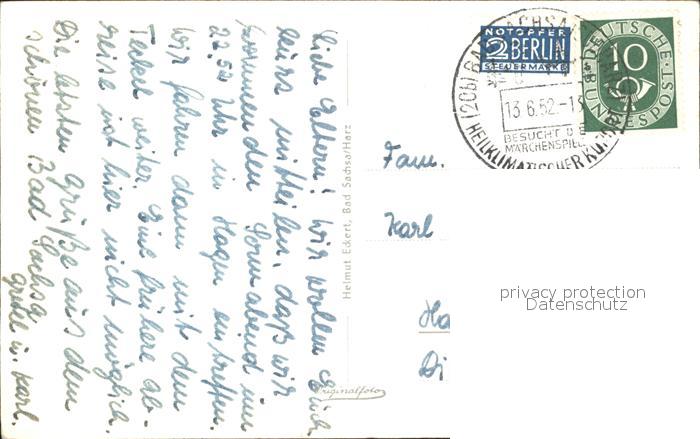 Liebe Eltern! Wir wollen Euch
kurz mitteilen, daß wir
kommenden Sonnabend um
22.52 Uhr in Hagen eintreffen.
Wir fahren dann mit dem
Teckel weiter. Eine frühere Ab-
reise ist hier nicht möglich.
Die letzten Grüße aus dem
schönen Bad Sachsa
Gretel u. Karl.
Helmut Eckert, Bad Sachsa/Harz
Originalfoto
NOTOPFER
2 BERLIN
STEUERMARKE
DEUTSCHE
10
BUNDESPOST
(20b) BAD SACHSA
13.6.52.-18
BESUCHT DIE
MÄRCHENSPIELE
HEILKLIMATISCHER KURORT
Fam.
Karl
Ha
Di
privacy protection
Datenschutz